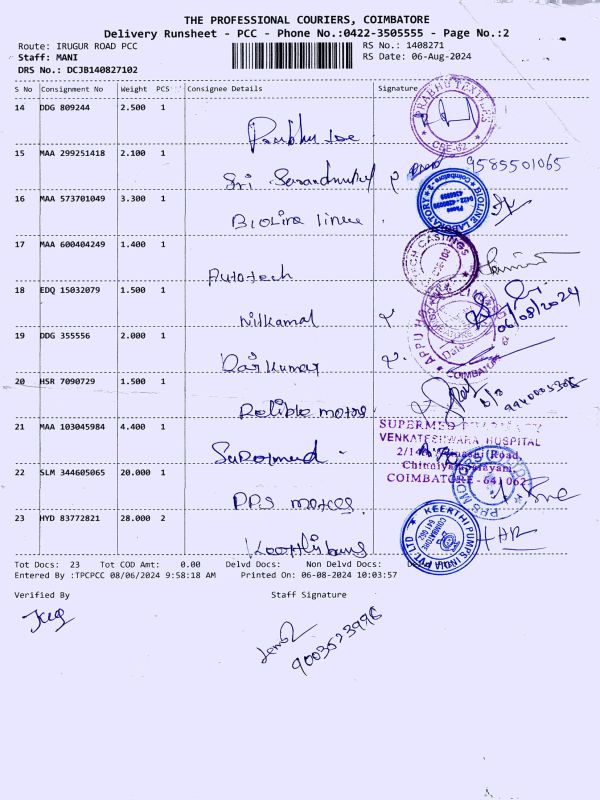 THE PROFESSIONAL COURIERS, COIMBATORE
Delivery Runsheet - PCC - Phone No.:0422-3505555 - Page No.:2
Route: IRUGUR ROAD PCC
RS No.: 1408271
Staff: MANI
RS Date: 06-Aug-2024
DRS No.: DCJB140827102
S No Consignment No Weight PCS Consignee Details Signature
14 DDG 809244 2.500 1
PRABHU TEXTILES
CBE-62
15 MAA 299251418 2.100 1
9585501065
Sri
16 MAA 573701049 3.300 1
BIOLINE LABORATORY
Coimbatore-2
Phone
0422 - 4200999
4360999
Bioline linen
17 MAA 600404249 1.400 1
TECH CASTINGS
Autotech
18 EDQ 15032079 1.500 1
06/08/2024
Nilkamal
19 DDG 355556 2.000 1
APPU
COIMBATORE
Rajkumar
20 HSR 7090729 1.500 1
Relible motors
21 MAA 103045984 4.400 1
SUPERMED
VENKATESHWARA HOSPITAL
Road,
Chinniyampalayam,
COIMBATORE - 641 062
Supermed
22 SLM 344605065 20.000 1
PPS MOTORS
PPS motors
23 HYD 83772821 28.000 2
KEERTHI PUMPS INDIA PVT LTD
COIMBATORE
641 062
Tot Docs: 23 Tot COD Amt: 0.00 Delvd Docs: Non Delvd Docs:
Entered By :TPCPCC 08/06/2024 9:58:18 AM Printed On: 06-08-2024 10:03:57
Verified By Staff Signature
9003523996